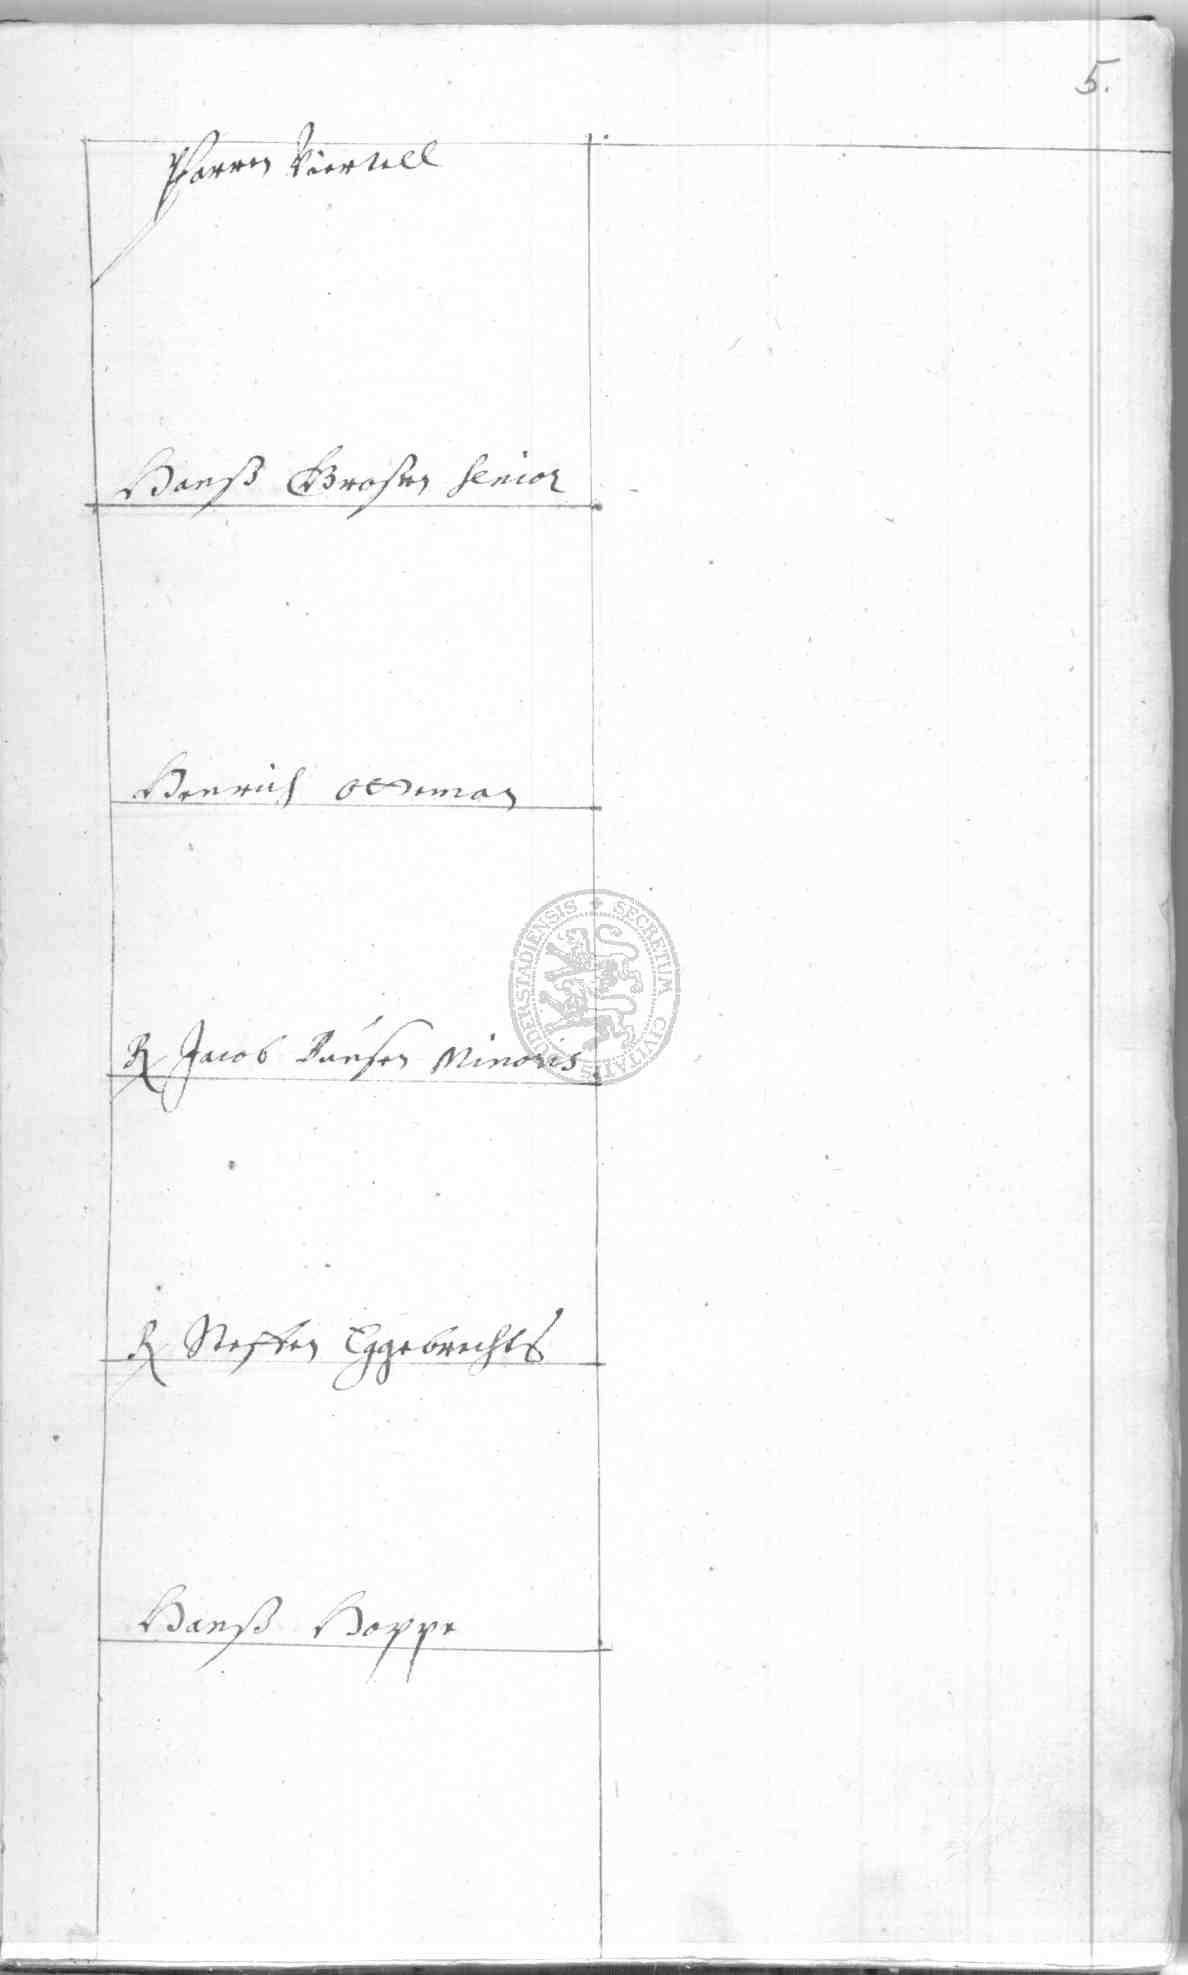 5.
Pfarren Viertell
Hanß Grosen Senior
Henrich Otteman
R Jacob Pausen Minoris
R Steffen Eggebrechts
Hanß Hoppe
SECRETUM CIVITATIS DUDERSTADIENSIS